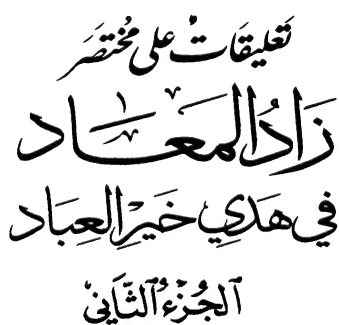 تعليقات على مختصر
زَادُ المعَاد
في هَدي خَيرِ العِبَاد
الجُزءُ الثَّاني